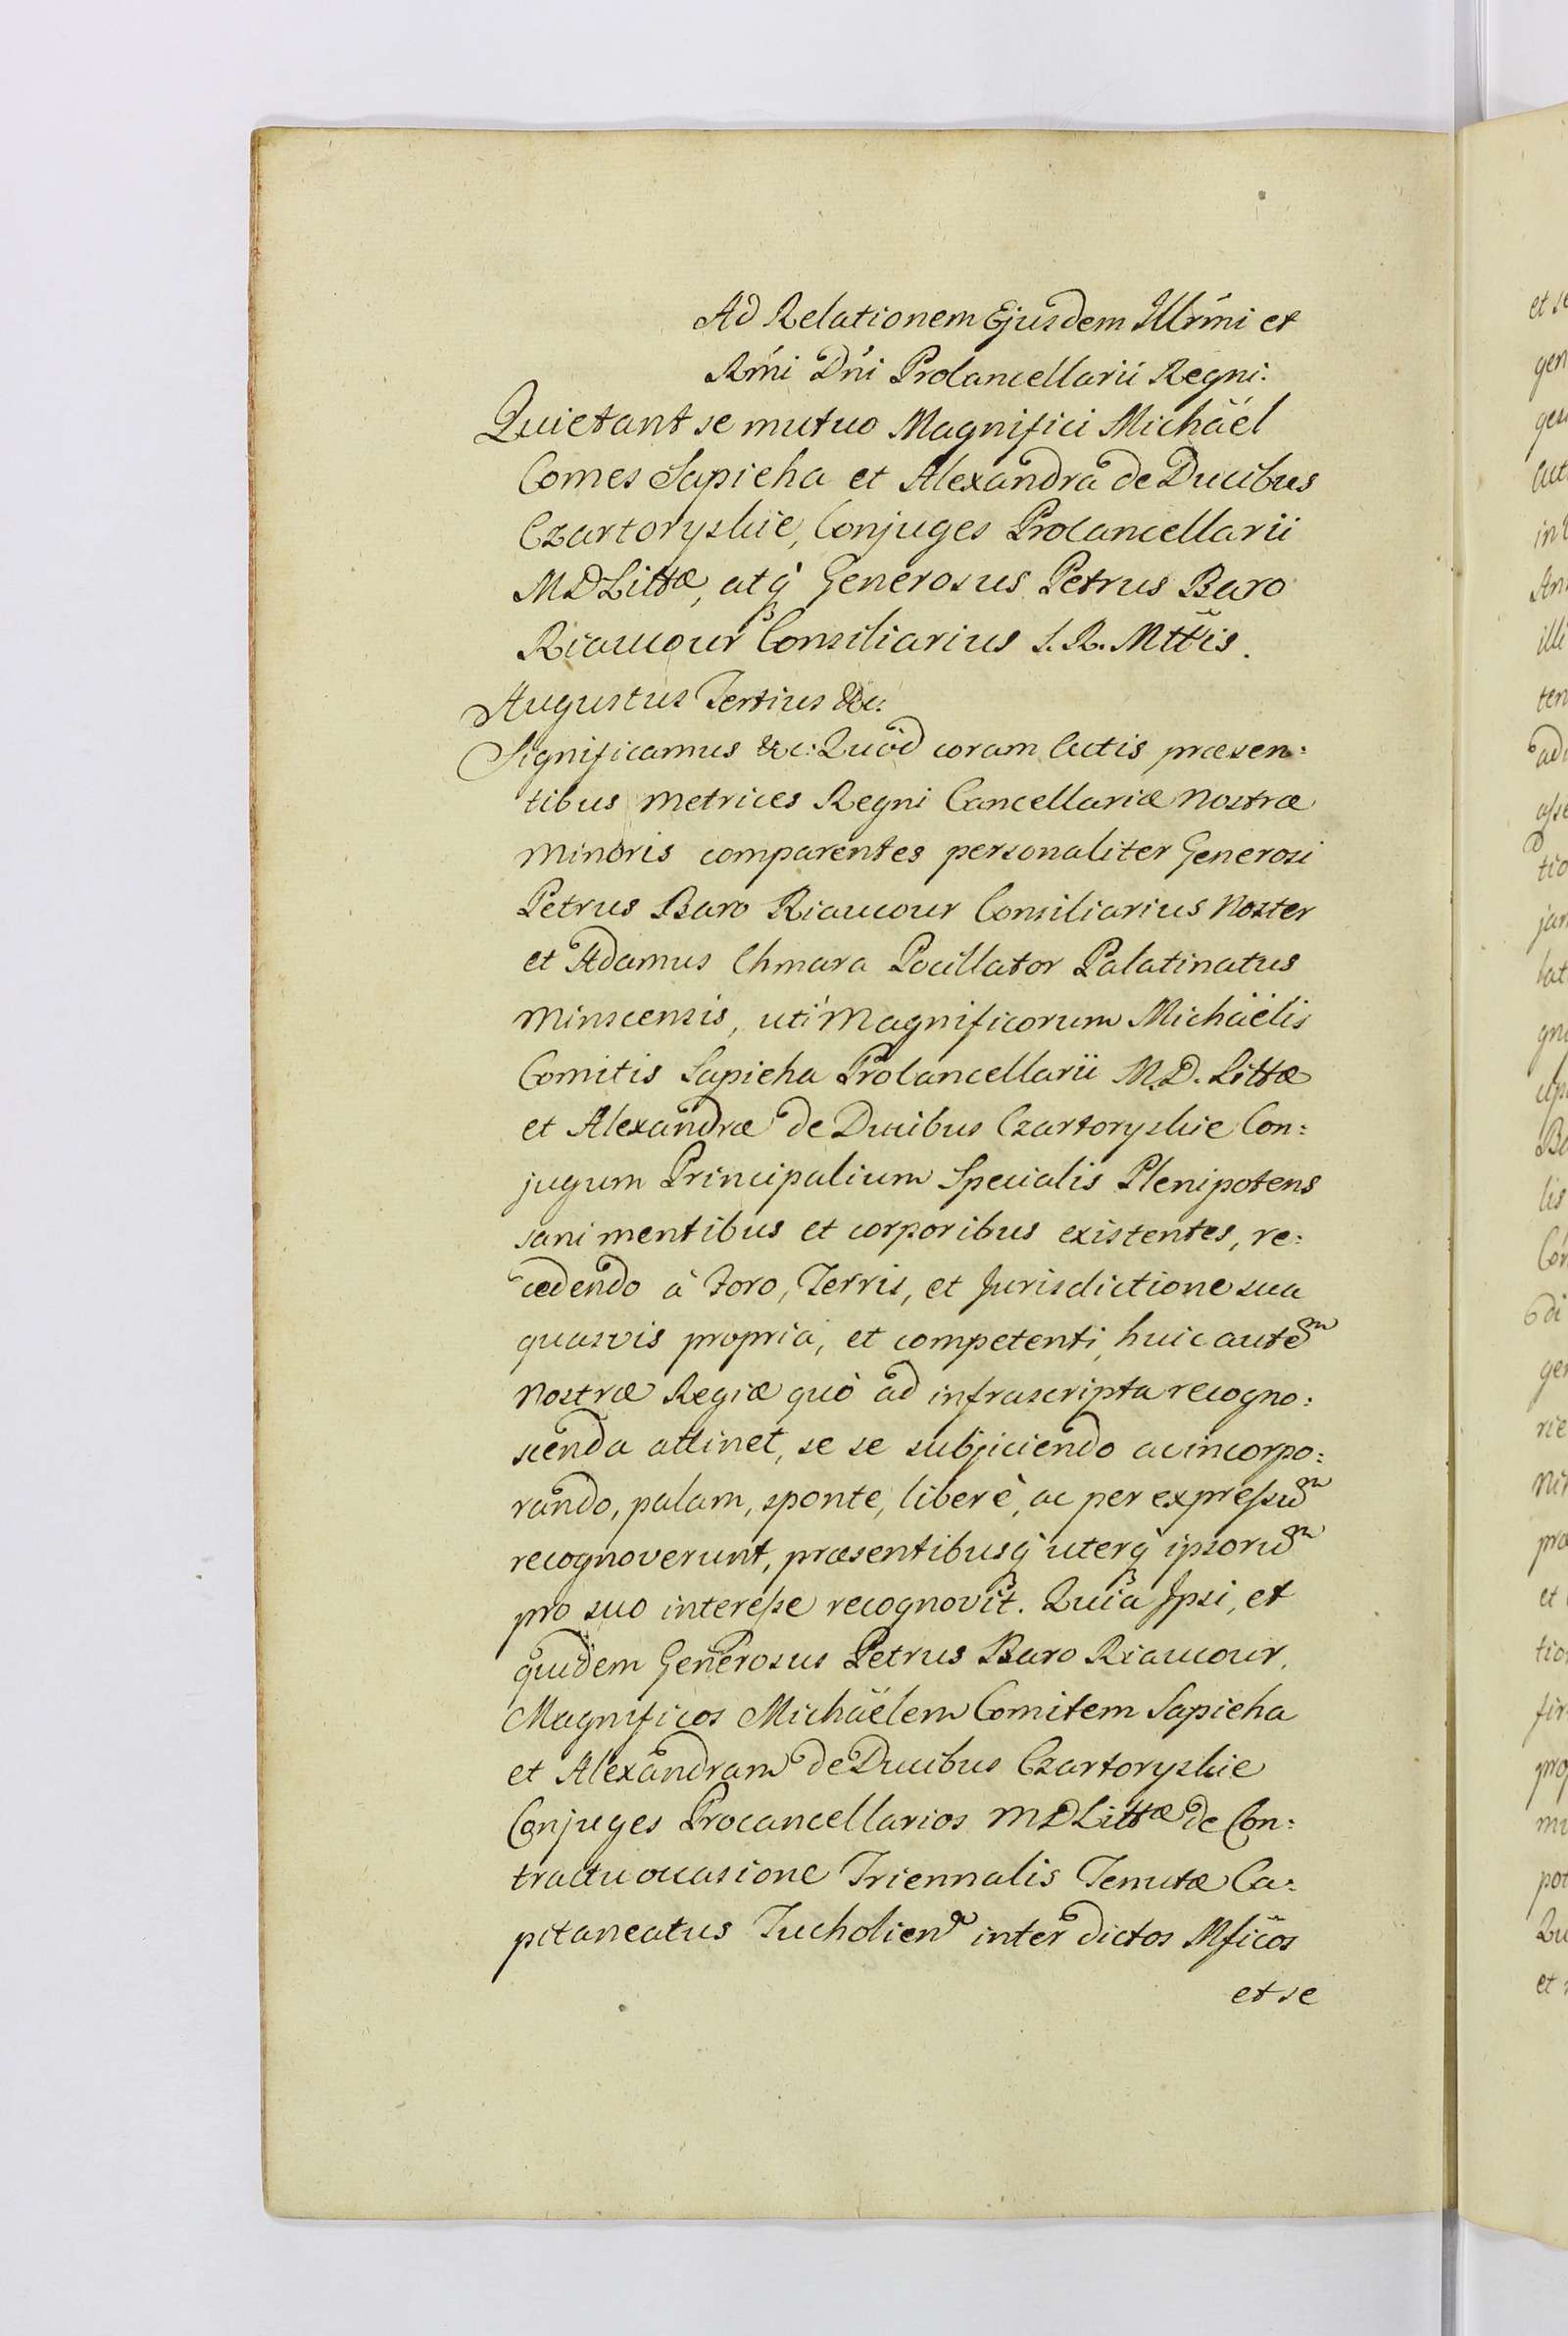 Ad Relationem Ejusdem Illrmi et
Rmi Dni Procancellarii Regni.
Quietant se mutuo Magnifici Michäel
Comes Sapieha et Alexandra de Ducibus
Czartoryskie, Conjuges Procancellarii
MDLittæ, atq Generosus Petrus Baro
Riaucour Consiliarius S. R. Mttis.
Augustus Tertius &c:
Significamus &c: Quod coram Actis præsen:
tibus Metrices Regni Cancellariæ Nostræ
Minoris comparentes personaliter Generosi
Petrus Baro Riaucour Consiliarius Noster
et Adamus Chmara Pocillator Palatinatus
Minscensis, uti Magnificorum Michäelis
Comitis Sapieha Procancellarii M.D. Littæ
et Alexandræ de Ducibus Czartoryskie Con:
jugum Principalium Specialis Plenipotens
sani mentibus et corporibus existentes, re:
cedendo à Foro, Terris, et Jurisdictione sua
quasvis propria, et competenti, huic autem
Nostræ Regiæ quò ad infrascripta recogno:
scenda attinet, se se subjiciendo ac incorpo:
rando, palam, sponte, liberè, ac per expressum
recognoverunt, præsentibusq uterq ipsorum
pro suo interesse recognovit. Quia Ipsi, et
quidem Generosus Petrus Baro Riaucour,
Magnificos Michäelem Comitem Sapieha
et Alexandram de Ducibus Czartoryskie
Conjuges Procancellarios MDLittæ de Con:
tractu occasione Triennalis Tenutæ Ca:
pitaneatus Tucholien inter dictos Mficos
et se